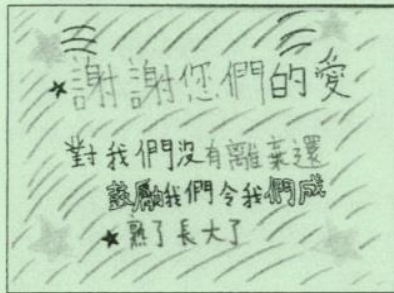 謝謝您們的愛
對我們沒有離棄還
鼓勵我們令我們成
熟了長大了